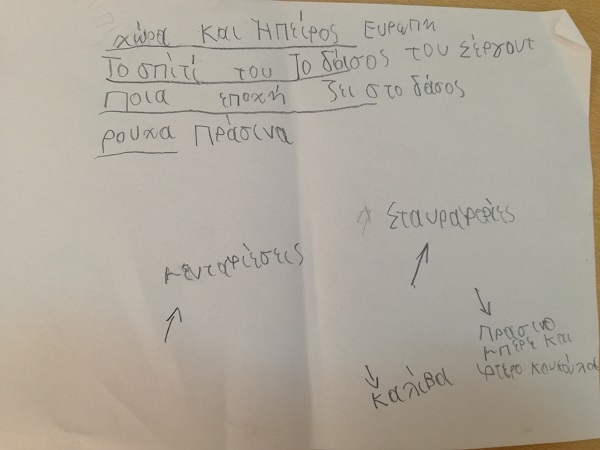 χώρα και Ηπείρος Ευρωπη
Το σπίτι του Το δάσος του Σέργουτ
Ποια εποχή ζει στο δάσος
ρουχα Πράσινα
Σταυραφορίες
κενταριέσεις
πρασινο
μπερε και
φτερο κουκούλα
καλίβα